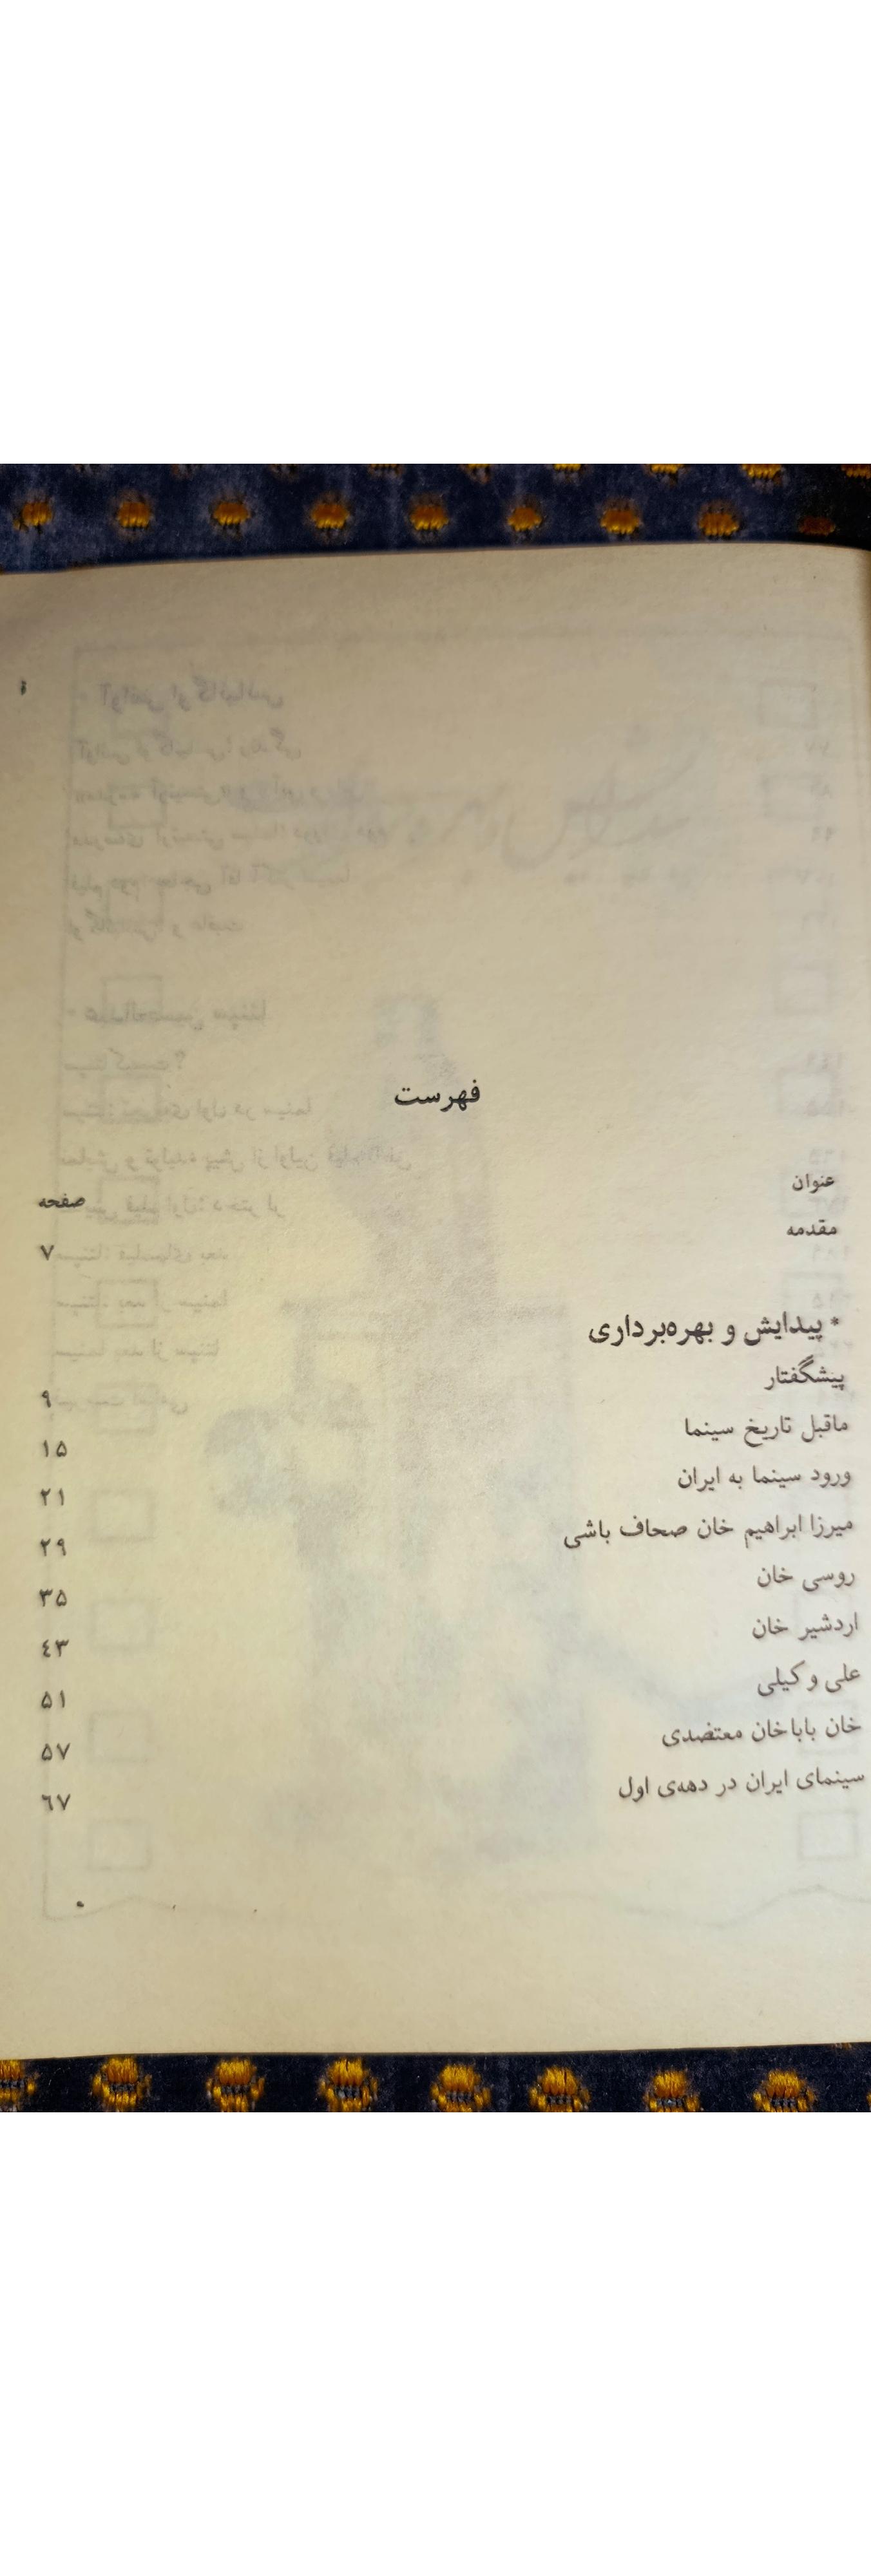 فهرست
عنوان صفحه
مقدمه ۷
* پیدایش و بهره‌برداری
پیشگفتار ۹
ماقبل تاریخ سینما ۱۵
ورود سینما به ایران ۲۱
میرزا ابراهیم خان صحاف باشی ۲۹
روسی خان ۳۵
اردشیر خان ۴۳
علی وکیلی ۵۱
خان باباخان معتضدی ۵۷
سینمای ایران در دهه‌ی اول ۶۷